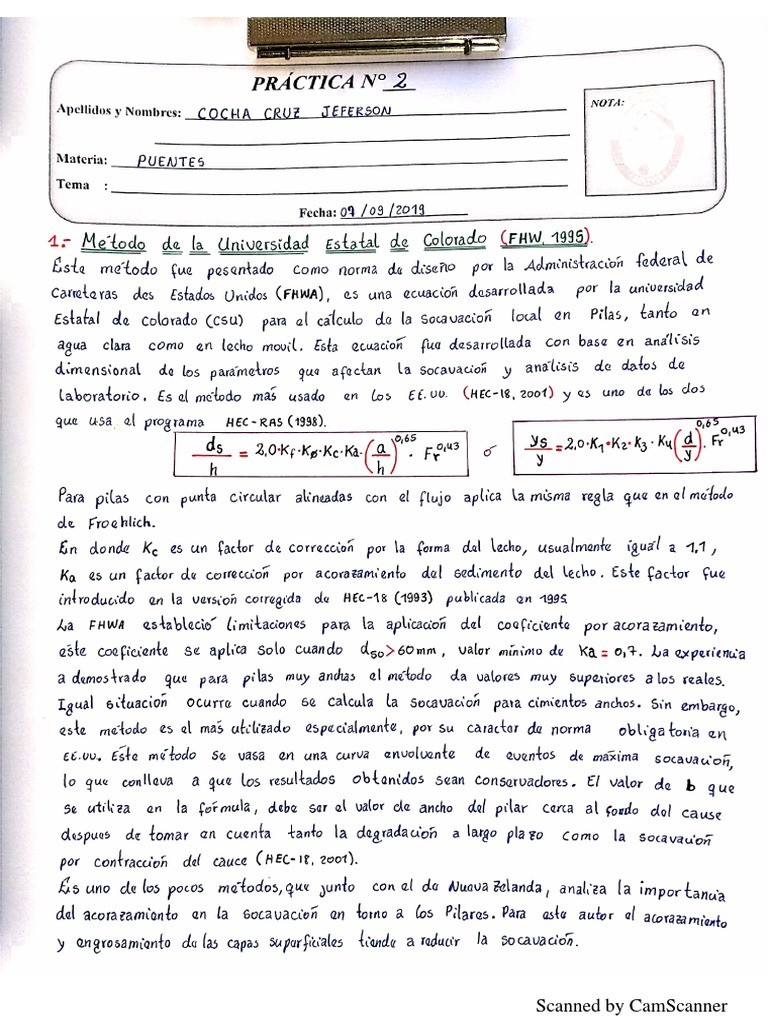 PRÁCTICA N° 2
Apellidos y Nombres: COCHA CRUZ JEFERSON
NOTA:
Materia: PUENTES
Tema :
Fecha: 09/09/2019
1.- Método de la Universidad Estatal de Colorado (FHW, 1995).
Este método fue pesentado como norma de diseño por la Administración federal de
Carreteras des Estados Unidos (FHWA), es una ecuación desarrollada por la universidad
Estatal de Colorado (CSU) para el cálculo de la socavación local en Pilas, tanto en
agua clara como en lecho movil. Esta ecuación fue desarrollada con base en análisis
dimensional de los parámetros que afectan la socavación y análisis de datos de
laboratorio. Es el método más usado en los EE.UU. (HEC-18, 2001) y es uno de los dos
que usa el programa HEC-RAS (1998).
ds/h = 2,0·Kf·Kø·Kc·Ka·(a/h)^0,65 · Fr^0,43 ó ys/y = 2,0·K1·K2·K3·K4(d/y)^0,65 · Fr^0,43
Para pilas con punta circular alineadas con el flujo aplica la misma regla que en el método
de Froehlich.
En donde Kc es un factor de corrección por la forma del lecho, usualmente igual a 1,1,
Ka es un factor de corrección por acorazamiento del sedimento del lecho. Este factor fue
introducido en la versión corregida de HEC-18 (1993) publicada en 1995
La FHWA estableció limitaciones para la aplicación del coeficiente por acorazamiento,
este coeficiente se aplica solo cuando d50>60mm, valor mínimo de Ka = 0,7. La experiencia
a demostrado que para pilas muy anchas el método da valores muy superiores a los reales.
Igual situación ocurre cuando se calcula la socavación para cimientos anchos. Sin embargo,
este método es el más utilizado especialmente, por su caracter de norma obligatoria en
EE.UU. Este método se vasa en una curva envolvente de eventos de máxima socavación,
lo que conlleva a que los resultados obtenidos sean conservadores. El valor de b que
se utiliza en la fórmula, debe ser el valor de ancho del pilar cerca al fondo del cause
despues de tomar en cuenta tanto la degradación a largo plazo como la socavación
por contracción del cauce (HEC-18, 2001).
Es uno de los pocos métodos, que junto con el de Nueva Zelanda, analiza la importancia
del acorazamiento en la socavación en torno a los Pilares. Para este autor el acorazamiento
y engrosamiento de las capas superficiales tiende a reducir la socavación.
Scanned by CamScanner